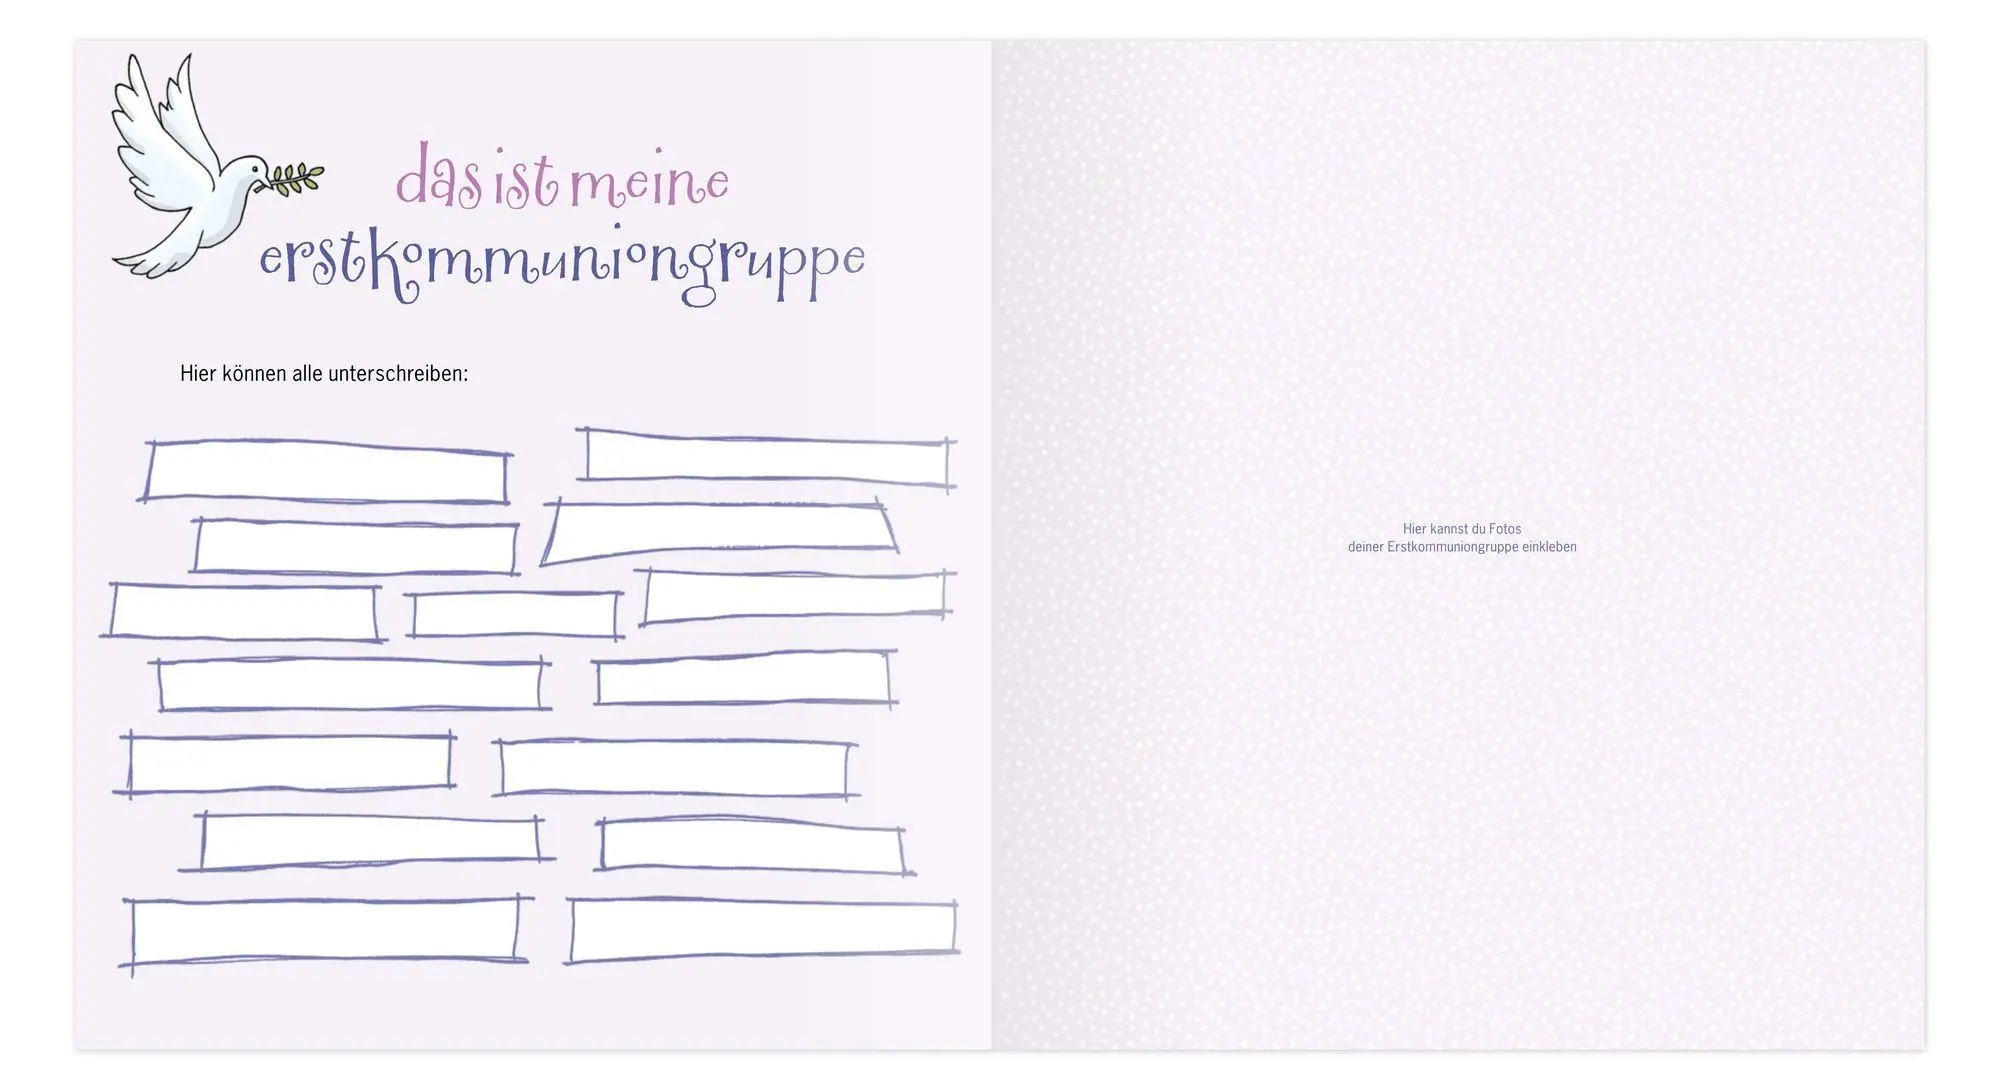 das ist meine
erstkommuniongruppe
Hier können alle unterschreiben:
Hier kannst du Fotos
deiner Erstkommuniongruppe einkleben